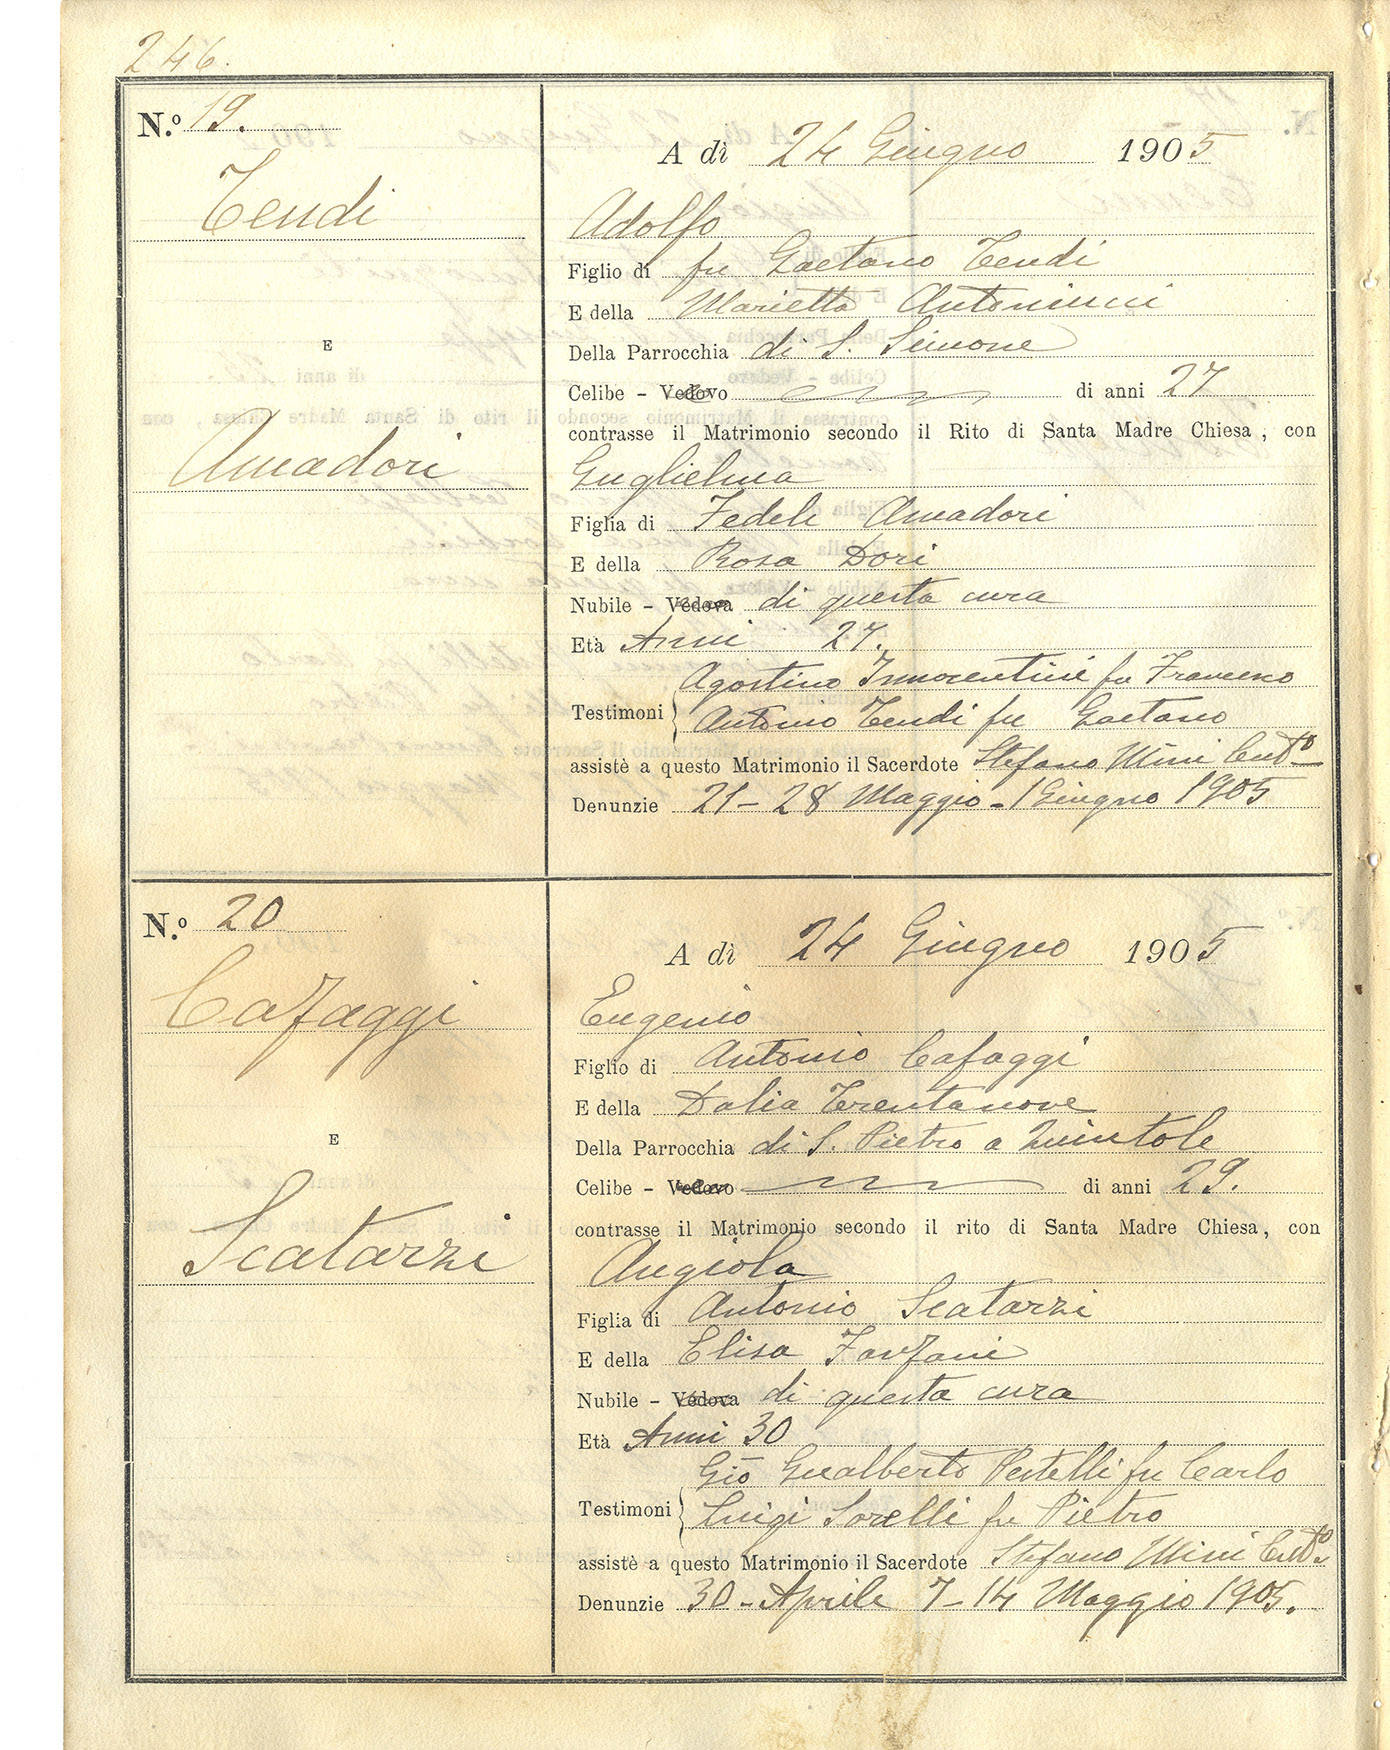 246.
N.º 19.
Tendi
E
Amadori
A dì 24 Giugno 1905
Adolfo
Figlio di fu Gaetano Tendi
E della Marietta Antoniucci
Della Parrocchia di S. Simone
Celibe - Vedovo di anni 27
contrasse il Matrimonio secondo il Rito di Santa Madre Chiesa, con
Guglielma
Figlia di Fedele Amadori
E della Rosa Dori
Nubile - Vedova di questa cura
Età Anni 27.
Agostino Innocentini fu Francesco
Testimoni Antonio Tendi fu Gaetano
assistè a questo Matrimonio il Sacerdote Stefano Mini
Denunzie 21 - 28 Maggio - 1 Giugno 1905
N.º 20
Cafaggi
E
Scatarzi
A dì 24 Giugno 1905
Eugenio
Figlio di Antonio Cafaggi
E della Dalia Trentanove
Della Parrocchia di S. Pietro a Quintole
Celibe - Vedovo di anni 29.
contrasse il Matrimonio secondo il rito di Santa Madre Chiesa, con
Angiola
Figlia di Antonio Scatarzi
E della Elisa Fanfani
Nubile - Vedova di questa cura
Età Anni 30
Gio Gualberto Pestelli fu Carlo
Testimoni Luigi Sorelli fu Pietro
assistè a questo Matrimonio il Sacerdote Stefano Mini
Denunzie 30 - Aprile 7 - 14 Maggio 1905.